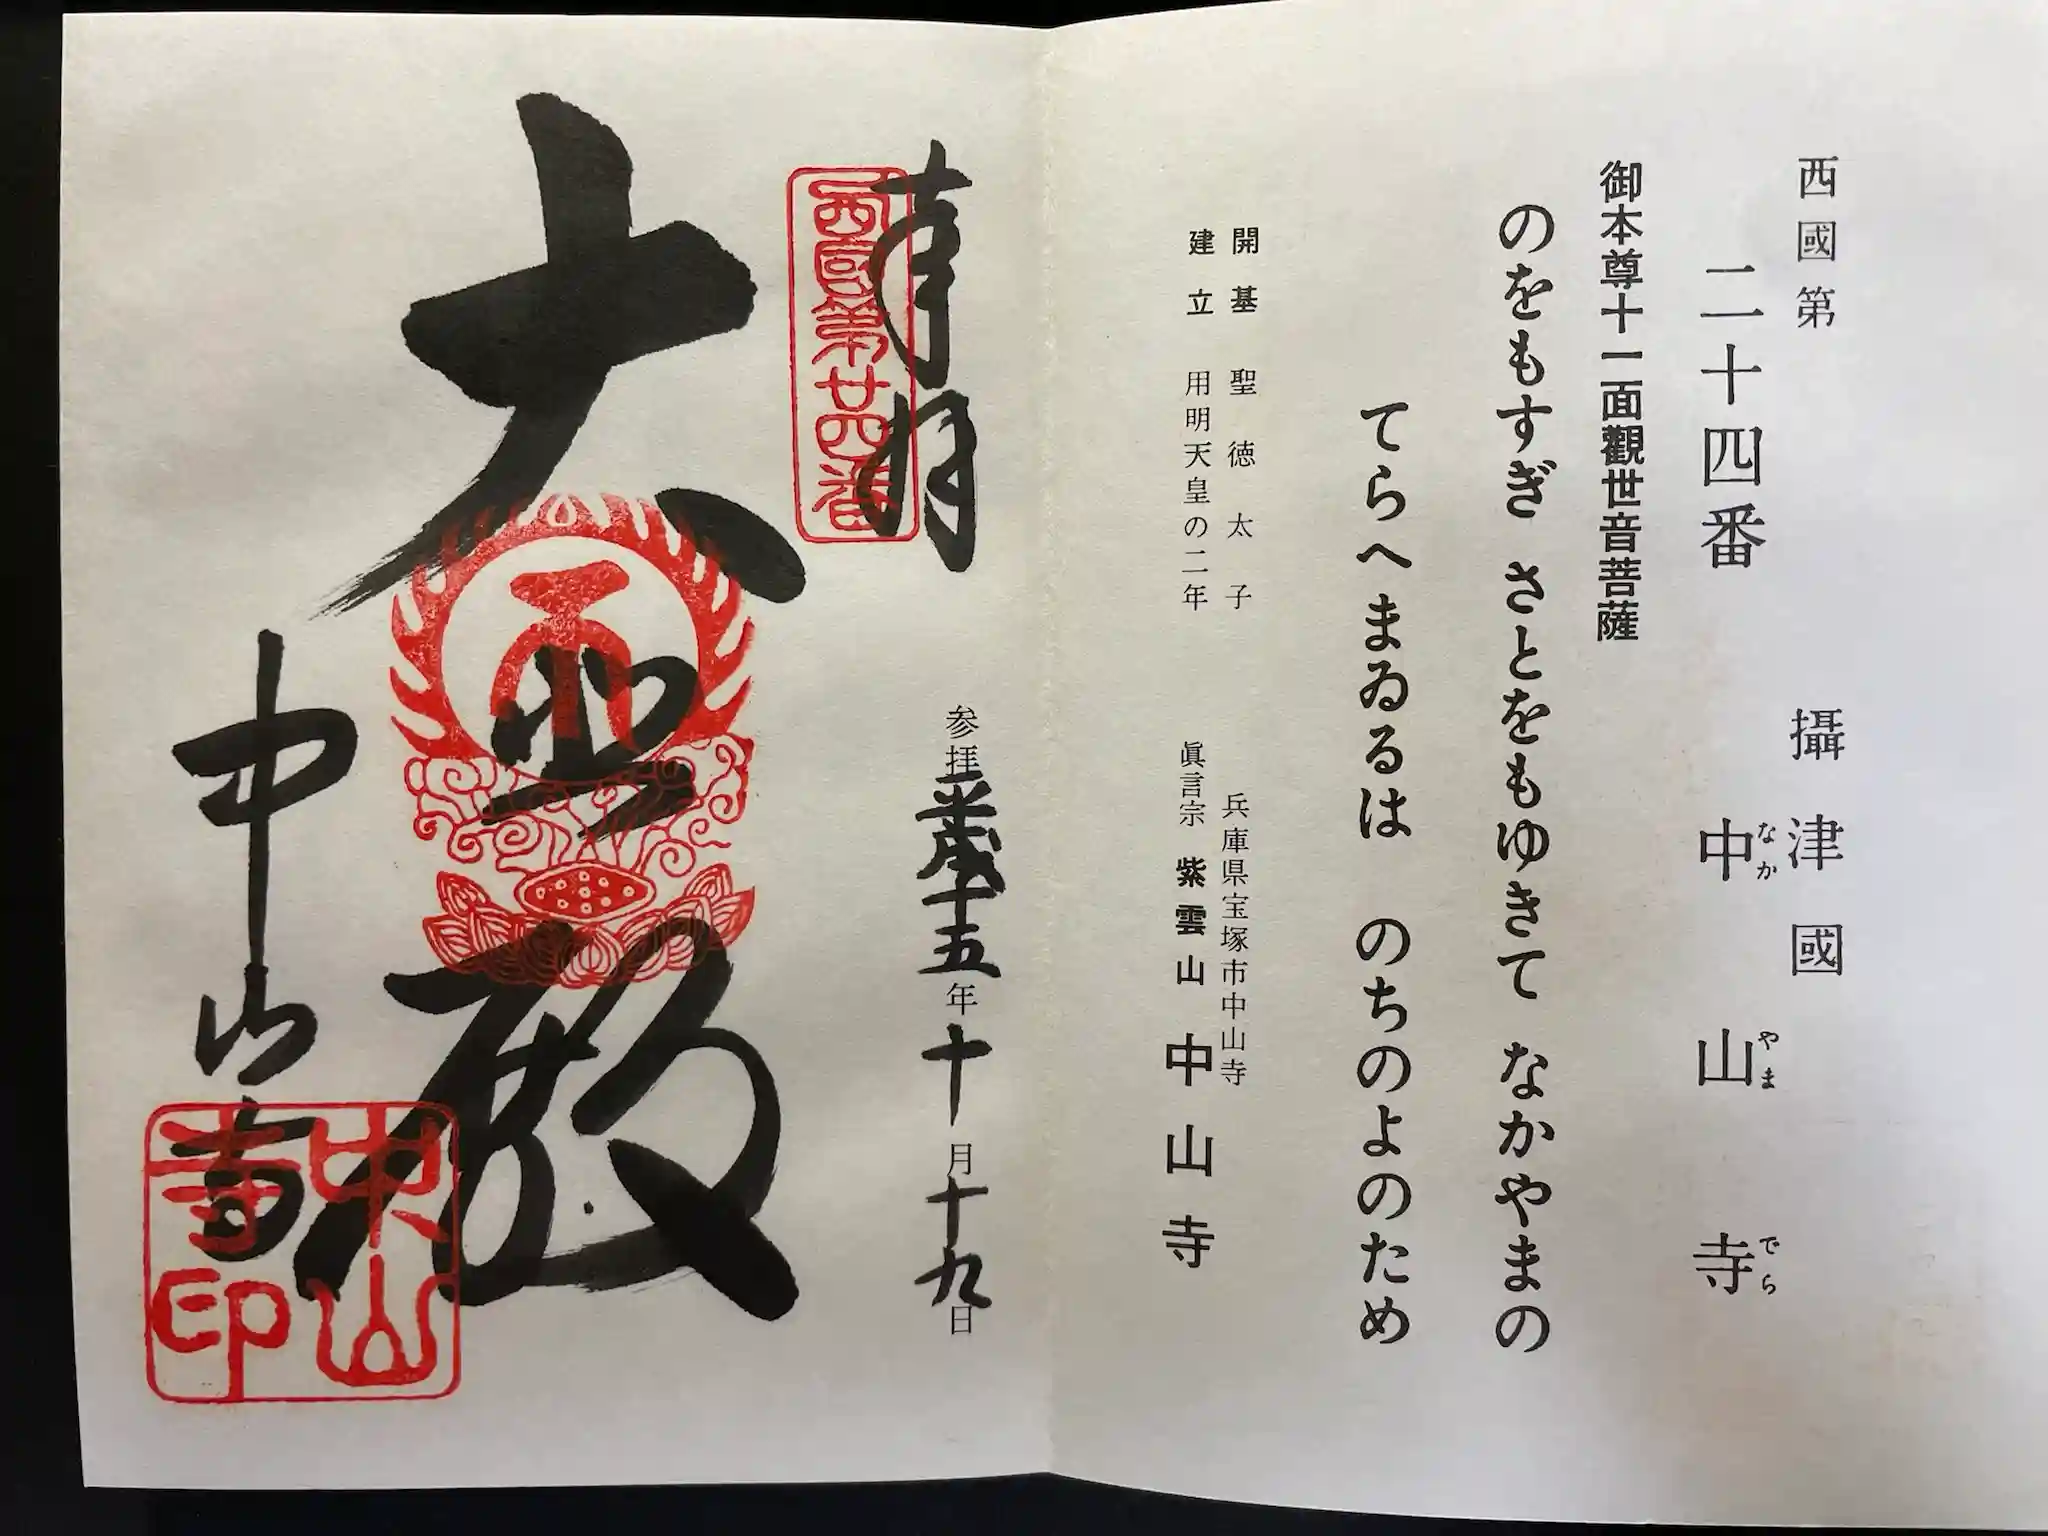 西國第
二十四番
攝津國
中山寺
なかやまでら
御本尊十一面觀世音菩薩
のをもすぎ さとをもゆきて なかやまの
てらへまゐるは のちのよのため
開基 聖徳太子
建立 用明天皇の二年
兵庫県宝塚市中山寺
眞言宗 紫雲山 中山寺
奉拝
西國第廿四番
参拝平成十五年十月十九日
大悲殿
中山寺
中山寺印